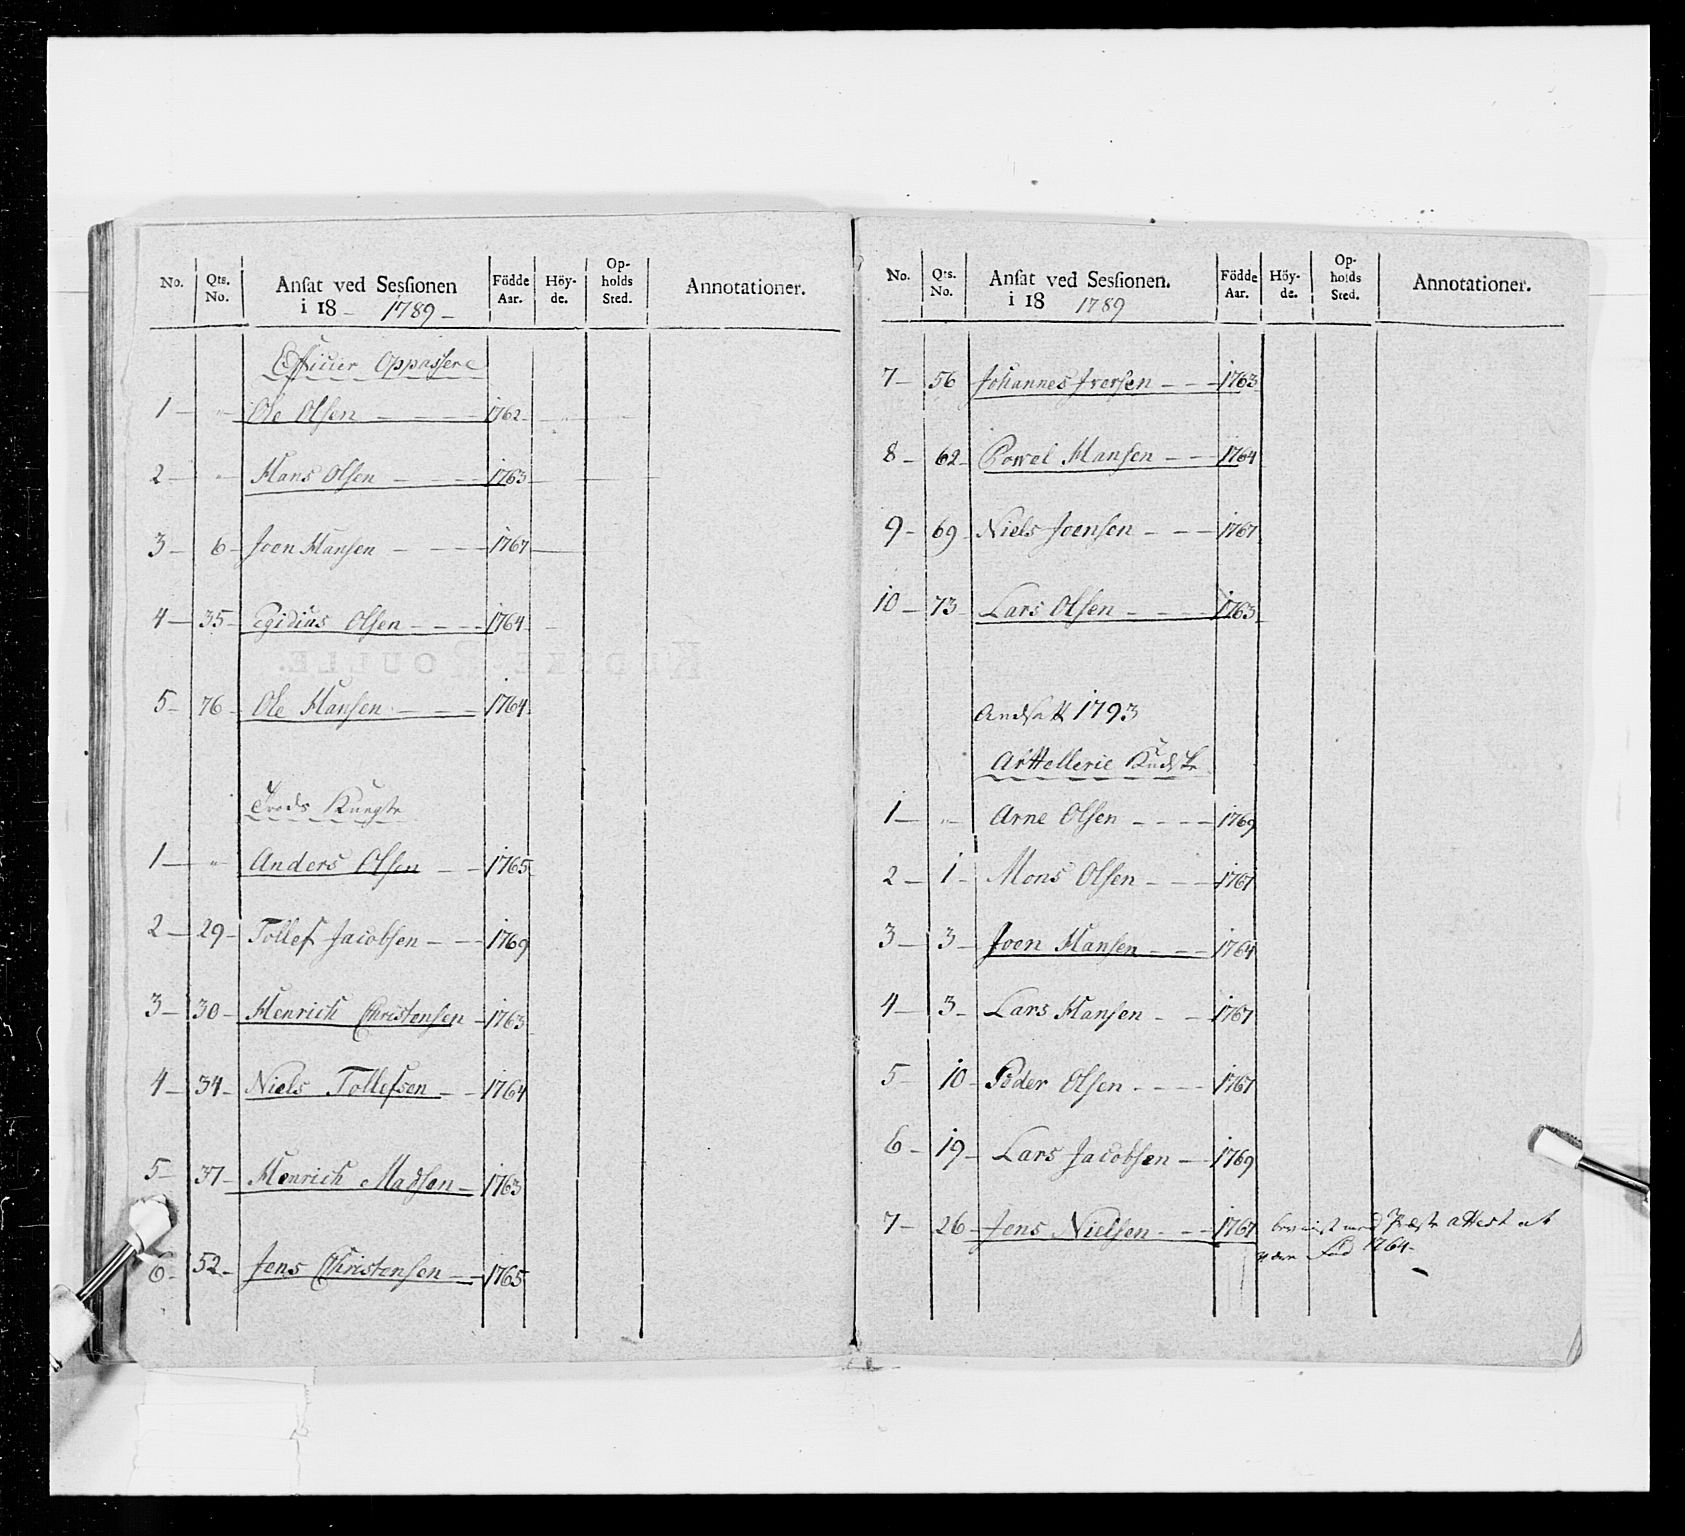 No. Qts. No. Ansat ved Sessionen i 18 - 1789 - Födde Aar. Höy-de. Op-holds Sted. Annotationer.
Officier Oppassere
1 - " - Ole Olsen - - - 1762
2 - " - Hans Olsen - - - 1763
3 - 6 - Joen Hansen - - - 1767
4 - 35 - Egidius Olsen - - - 1764
5 - 76 - Ole Hansen - - - 1764
1 - " - Anders Olsen - - 1765
2 - 29 - Tollef Jacobsen - - - 1769
3 - 30 - Henrich Christensen - 1763
4 - 34 - Niels Tollefsen - - 1764
5 - 37 - Henrich Madsen - 1763
6 - 52 - Jens Christensen - - 1765
No. Qts. No. Ansat ved Sessionen. i 18 1789 Födde Aar. Höy-de. Op-holds Sted. Annotationer.
7 - 56 Johannes Iversen - - - 1763
8 - 62 - Powel Hansen - - - 1764
9 - 69 Niels Joensen - - - 1767
10 - 73 Lars Olsen - - - 1763
Andsatt 1793
Arttellerie Kudske
1 - " - Arne Olsen - - - 1769
2 - 1 - Mons Olsen - - - 1767
3 - 3 - Joen Hansen - - - 1764
4 - 3 - Lars Hansen - - 1767
5 - 10 - Peder Olsen - - - 1767
6 - 19 - Lars Jacobsen - - 1769
7 - 26 - Jens Nielsen - - - 1767 med attest at
være Fød 1764 -